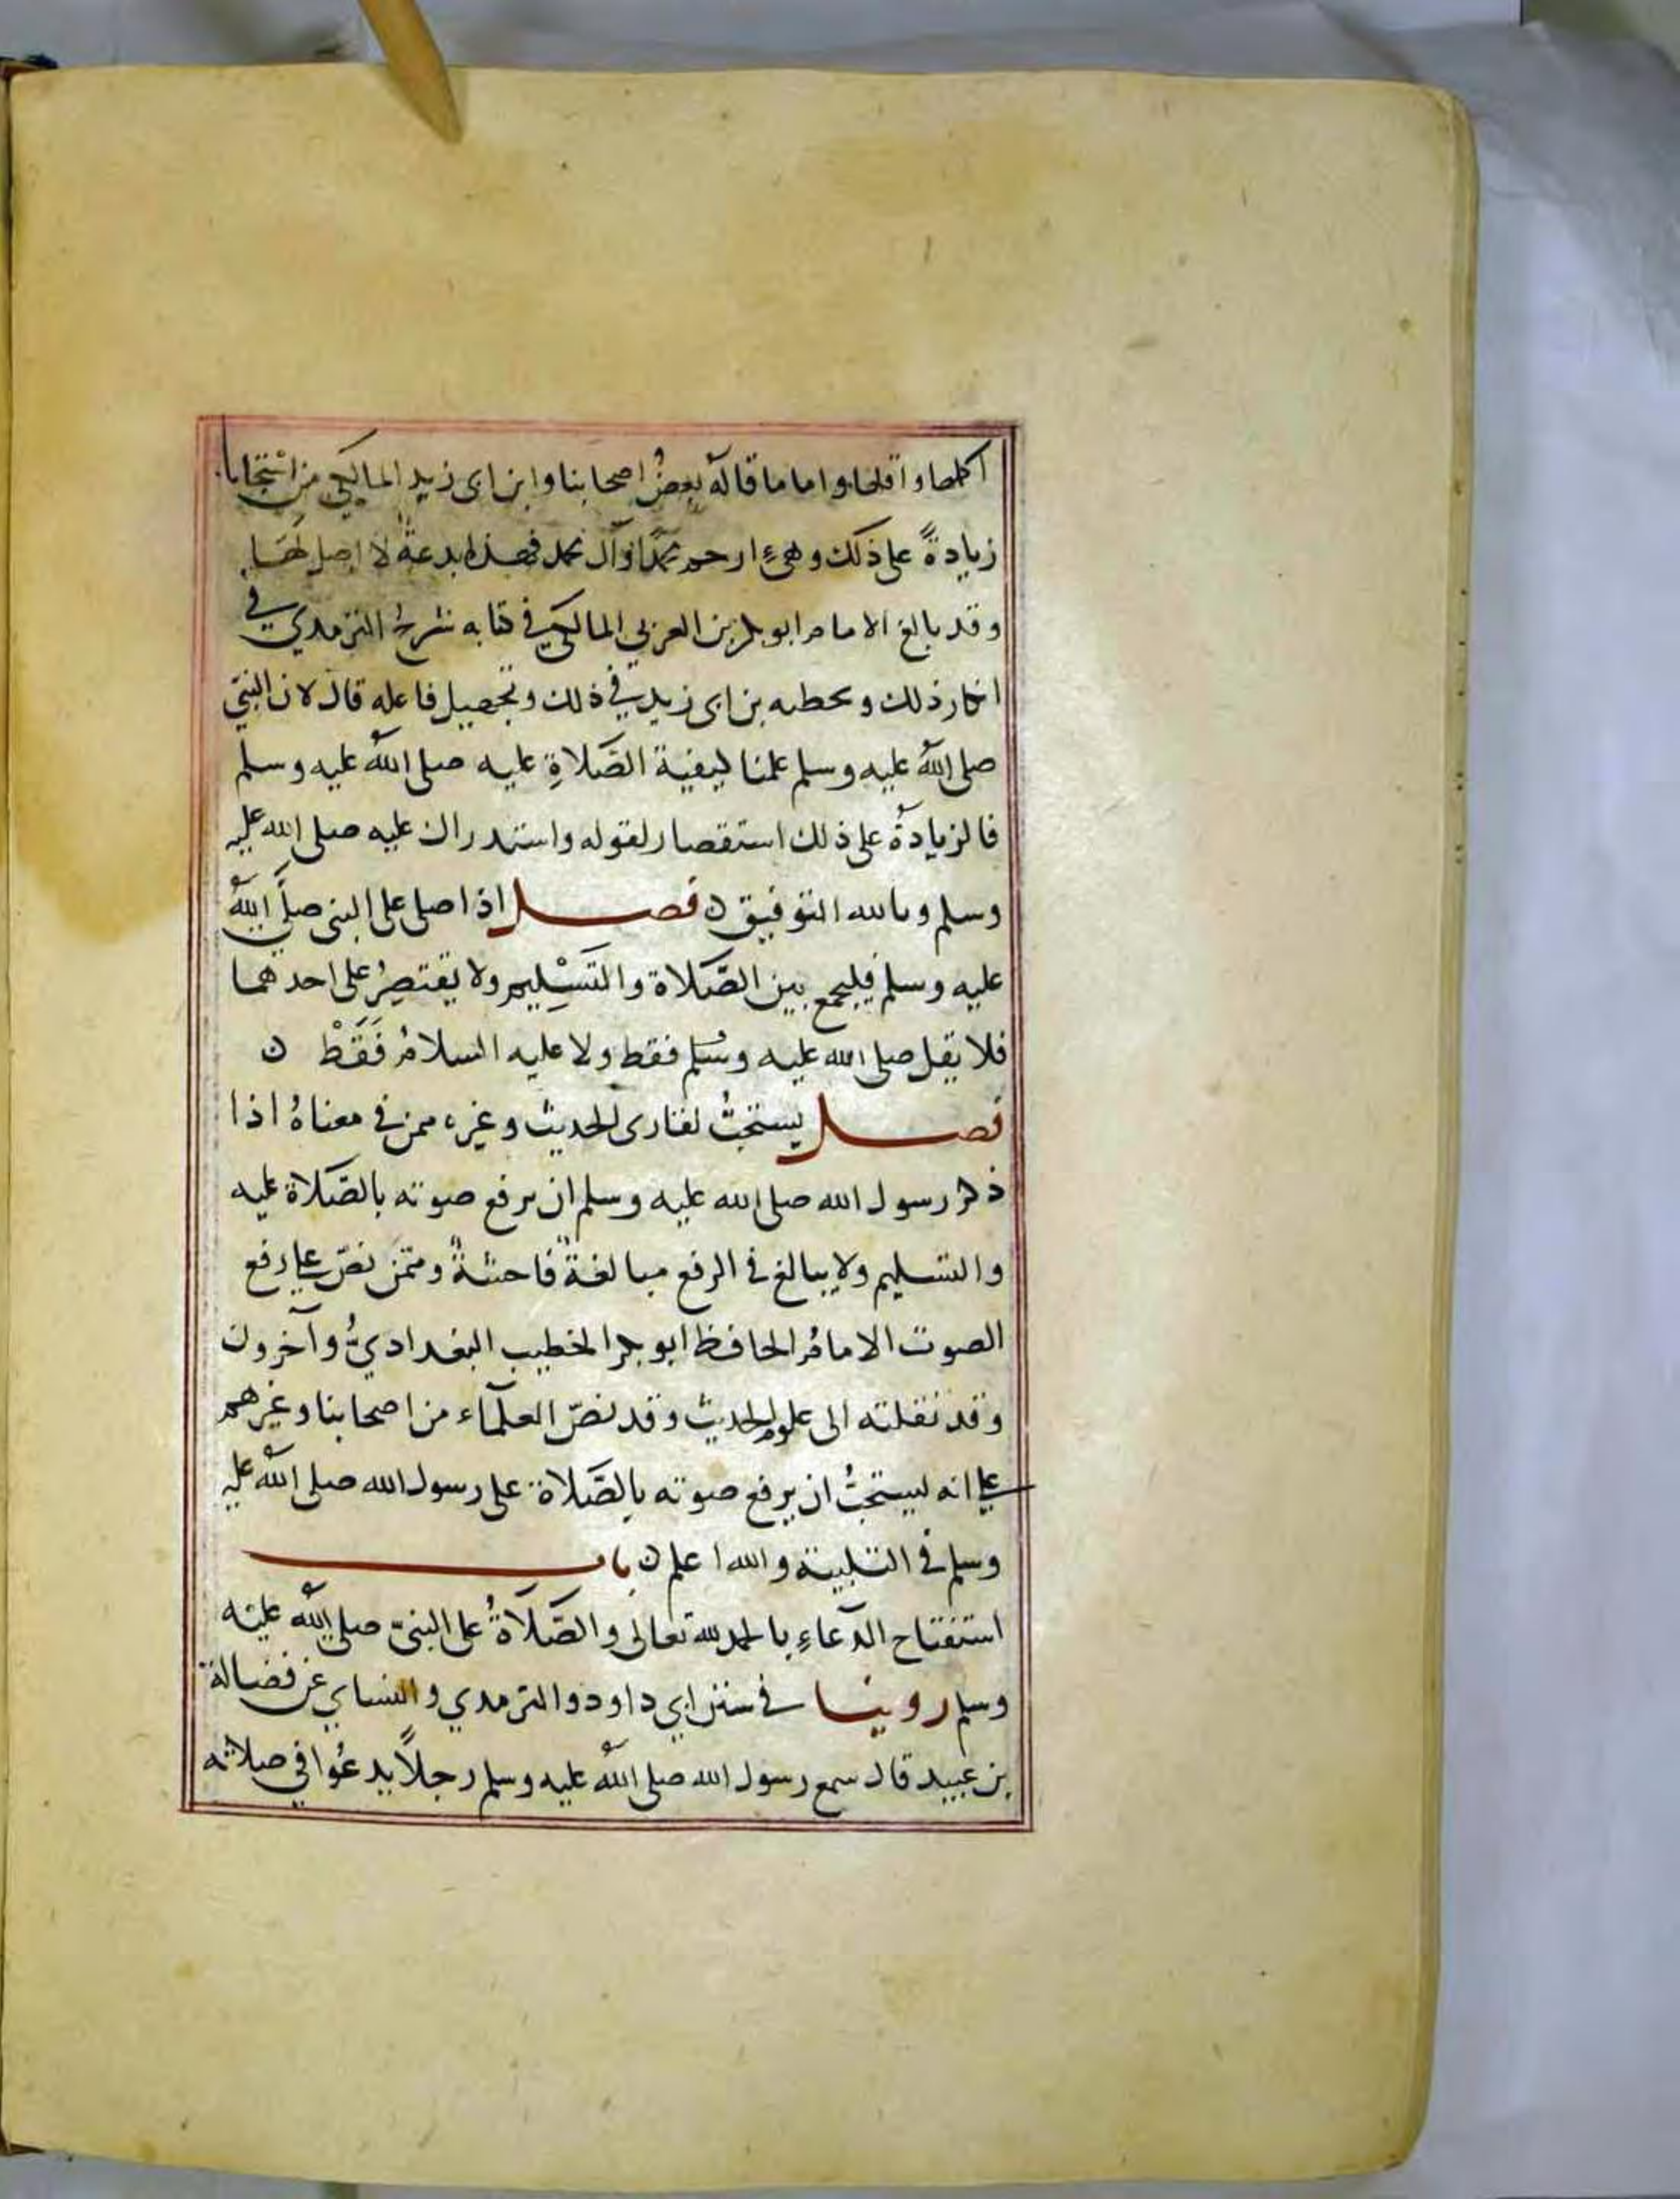 اكملها واقلها واما ما قاله بعضُ اصحابنا وابن ابى زيد المالكي من استحباب
زيادةً على ذلك وهي ارحم محمدًا وآل محمد فهذا بدعةٌ لا اصل لهَا
وقد بالغ الامام ابو بكر بن العربي المالكي في كتابه شرح الترمدي في
انكار ذلك وتخطيه بن ابى زيد في ذلك وتجهيل فاعله قال لان النبيّ
صلى اللهُ عليه وسلم علمنا كيفية الصَّلاةِ عليه صلى اللهُ عليه وسلم
فالزيادةُ على ذلك استقصار لقوله واستدراك عليه صلى الله عليه
وسلم وبالله التوفيق ن فصل اذا صلى على النبى صلّى اللهُ
عليه وسلم فليجمع بين الصَّلاة والتسْليم ولا يقتصِرُ على احدهما
فلا يقل صلى الله عليه وسلم فقط ولا عليه السلامُ فَقَطْ ن
فصل يستحبُّ لقارى الحديث وغيره ممن في معناهُ اذا
ذكر رسول الله صلى الله عليه وسلم ان يرفع صوته بالصَّلاة عليه
والتسليم ولا يبالغ في الرفع مبالغةً فاحشةً وممّن نصّ على رفع
الصوت الامامُ الحافظ ابو بكر الخطيب البغداديُّ وآخرون
وقد نقلته الى علوم الحديث وقد نصّ العلمآء من اصحابنا وغيرهم
على انه يستحبُّ ان يرفع صوته بالصَّلاة على رسول الله صلى اللهُ عليه
وسلم في التلبية والله اعلم ن باب
استفتاح الدعاءِ بالحمد لله تعالى والصَّلَاةُ على النبيّ صلى اللهُ عليه
وسلم روينا في سنن ابي داود والترمدي والنساي عن فضالة
بن عبيد قال سمع رسول الله صلى اللهُ عليه وسلم رجلًا يدعُوا في صلاته